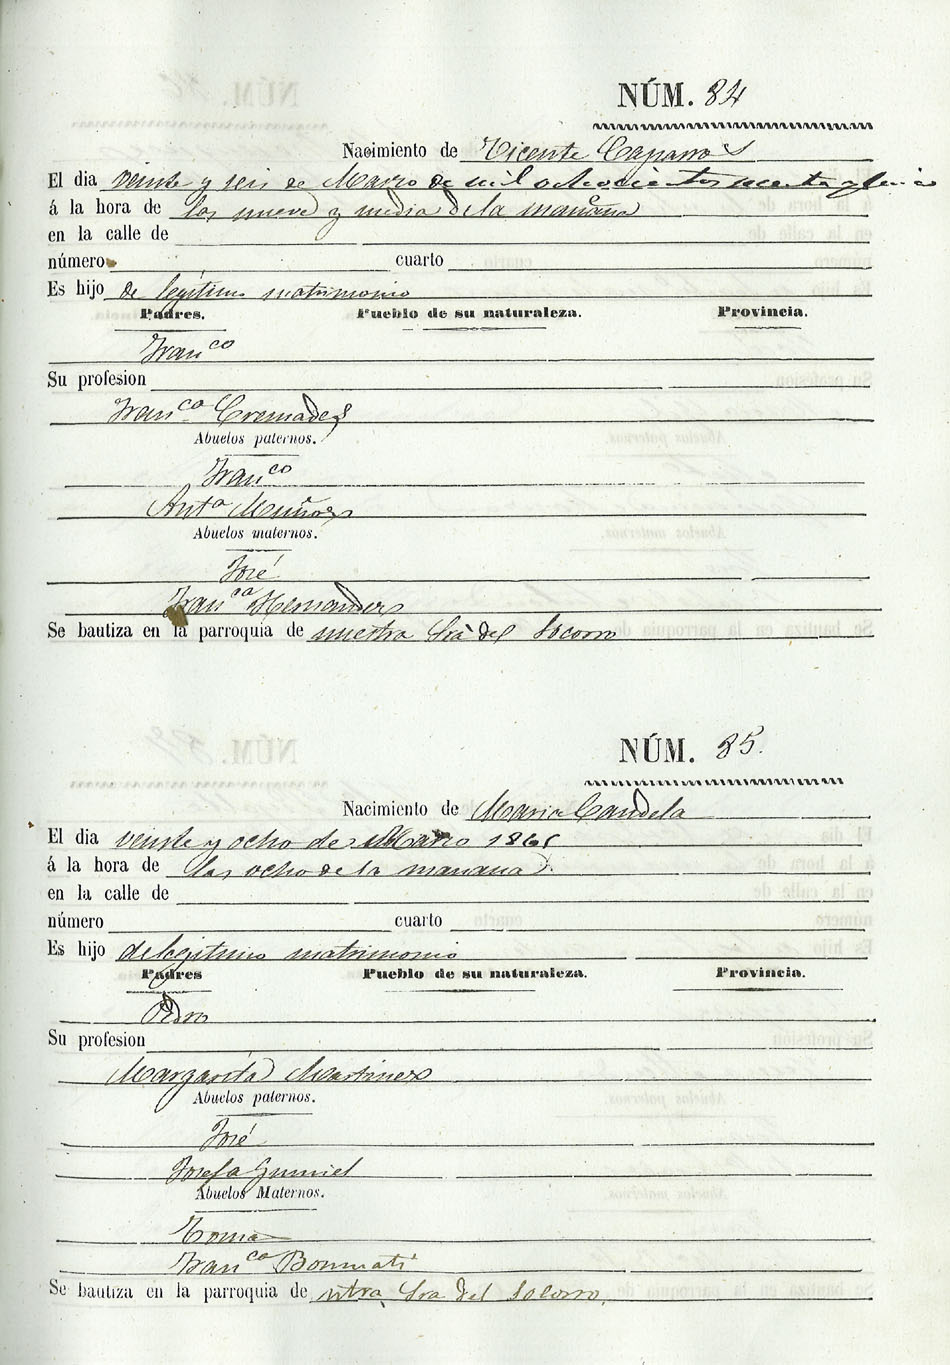 NÚM. 84
Nacimiento de Vicente Caparros
El dia veinte y seis de Marzo de mil ochocientos
á la hora de las nueve y media de la mañana
en la calle de
número cuarto
Es hijo de legitimo matrimonio
Padres. Pueblo de su naturaleza. Provincia.
Franco
Su profesion
Franca Cremades
Abuelos paternos.
Franco
Anta Muñoz
Abuelos maternos.
José
Franca Hernandez
Se bautiza en la parroquia de nuestra Sra del Socorro
NÚM. 85.
Nacimiento de Maria Candela
El dia veinte y ocho de Marzo 1865
á la hora de las ocho de la mañana
en la calle de
número cuarto
Es hijo de legitimo matrimonio
Padres Pueblo de su naturaleza. Provincia.
Pedro
Su profesion
Margarita Martinez
Abuelos paternos.
José
Josefa Gumiel
Abuelos Maternos.
Toma
Franca Bonmati
Se bautiza en la parroquia de ntra Sra del Socorro.